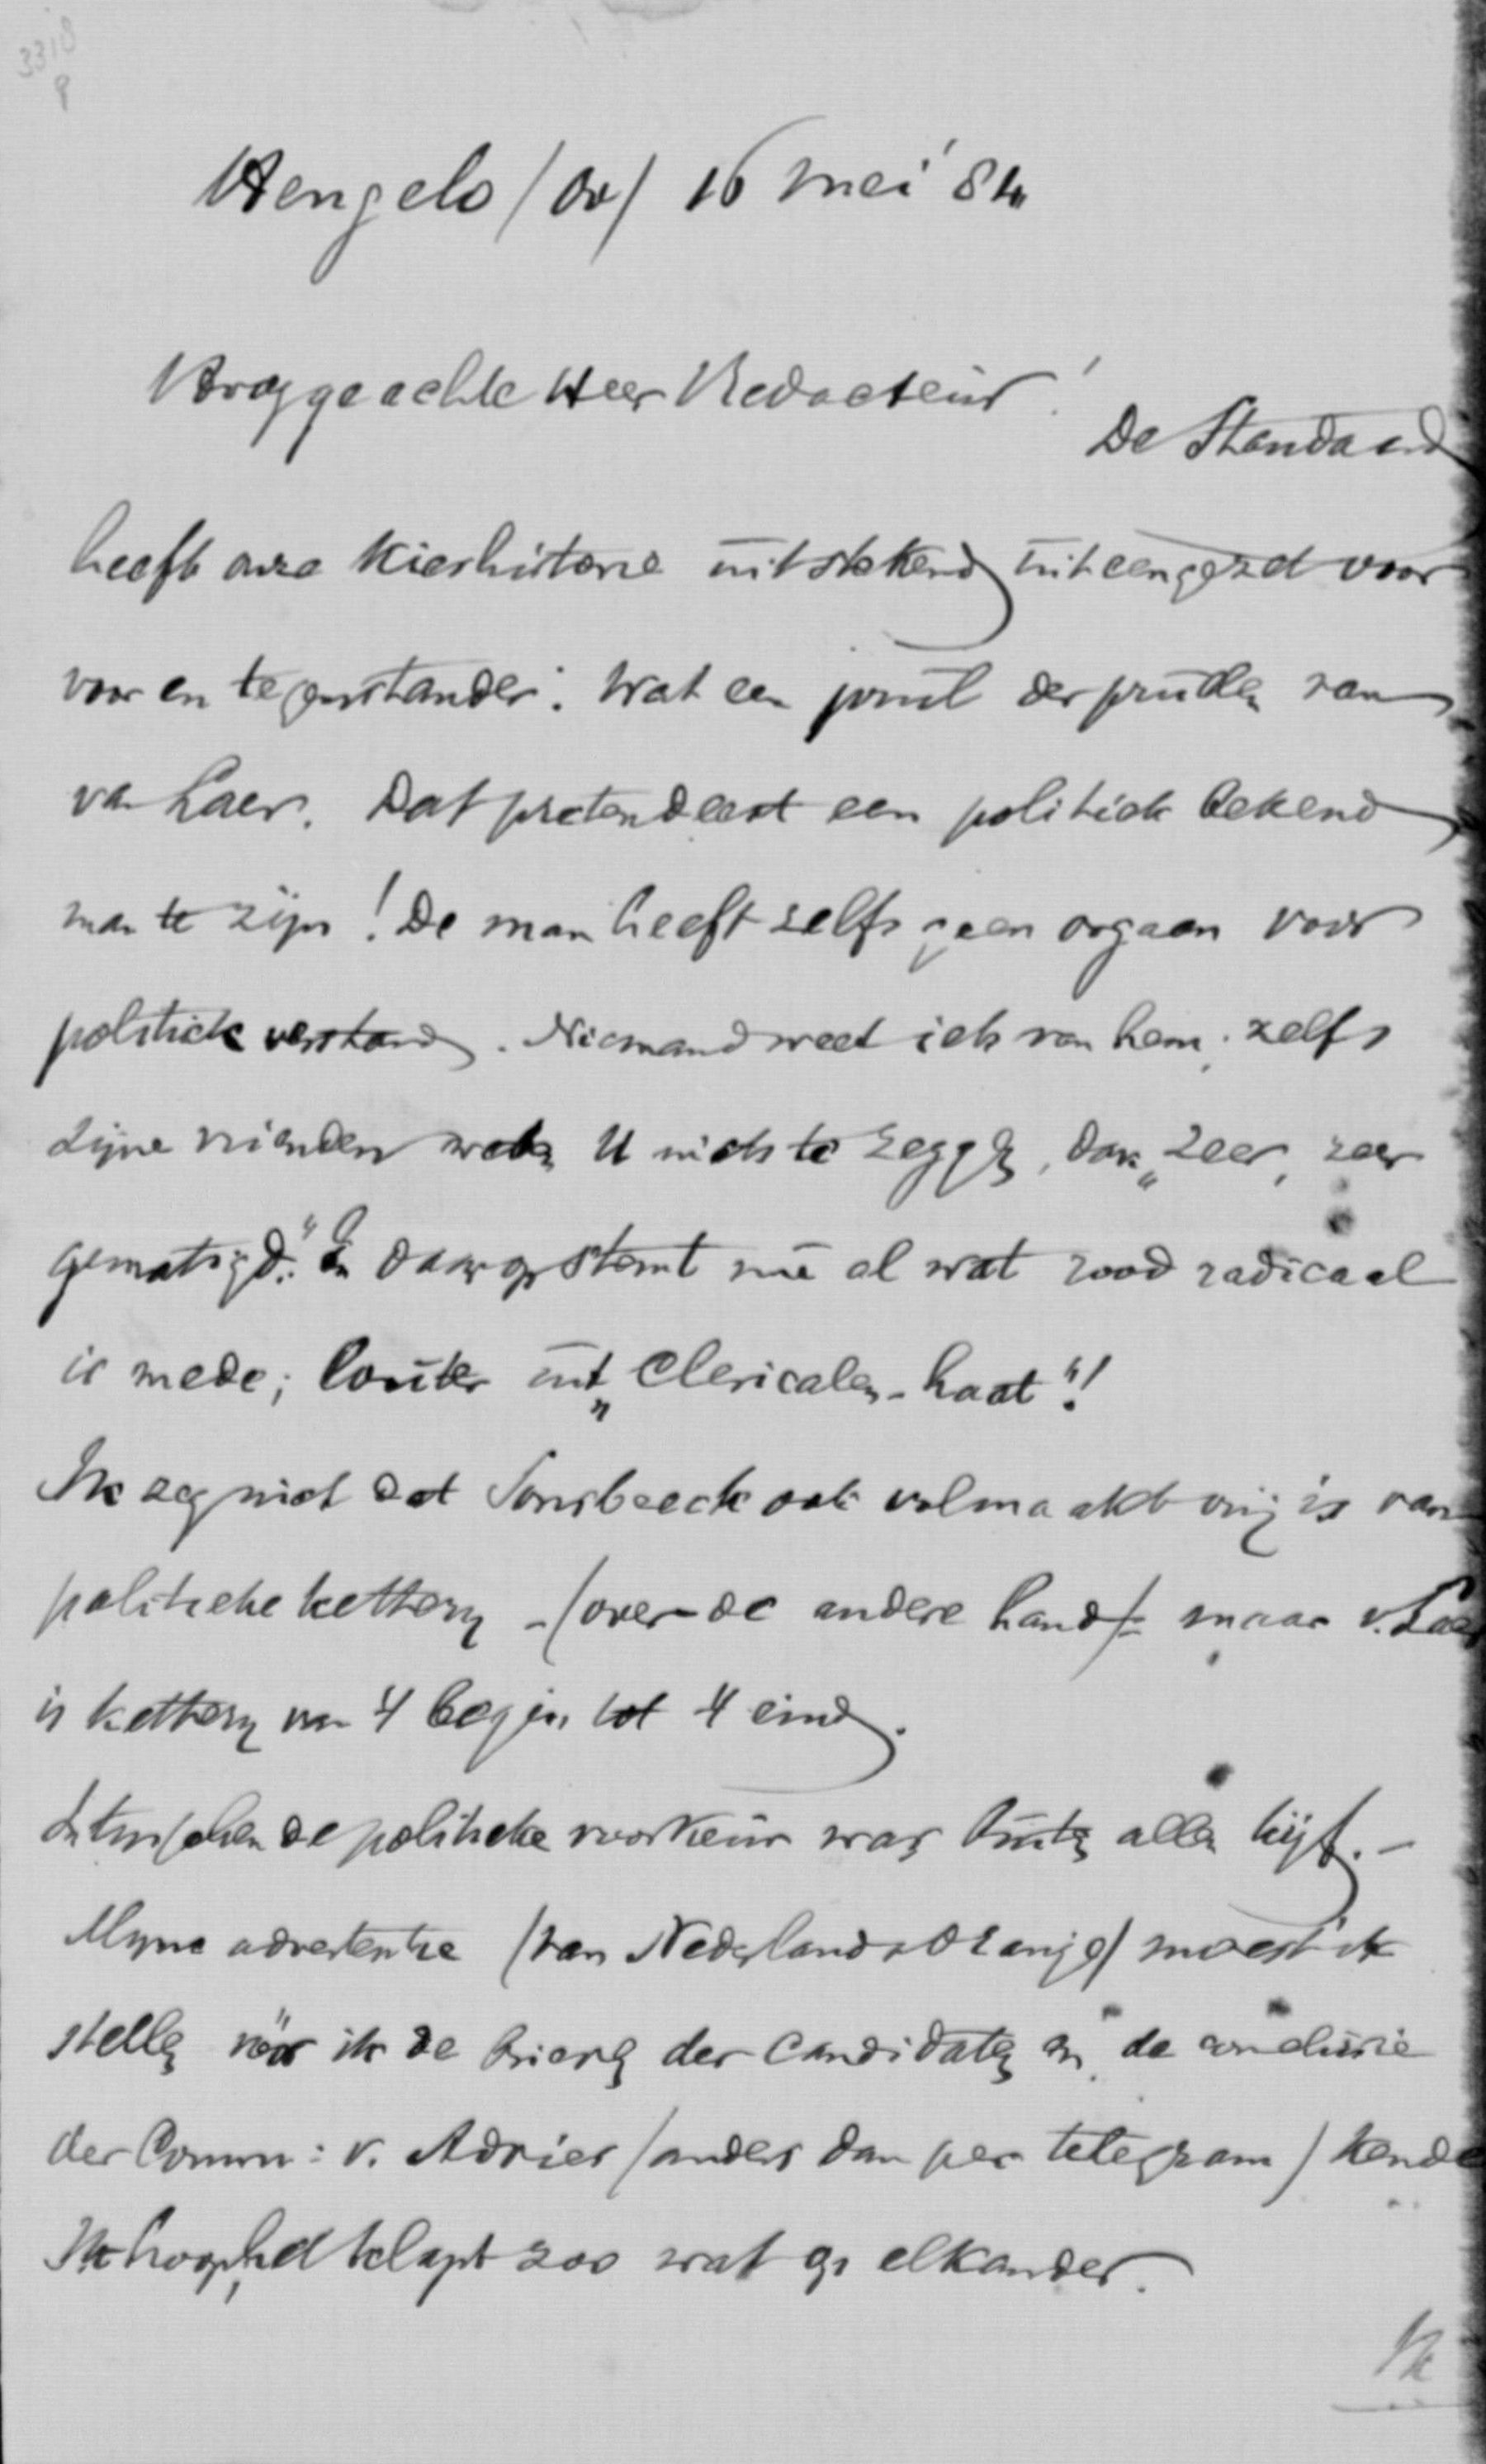 3318
9
Hengelo /Ov/ 16 Mei '84
Hooggeachte Heer Redacteur!
De Standaard
heeft onze kieshistorie uitstekend uiteengezet voor
voor en tegenstander. Wat een prul der prullen van
van Laer. Dat pretendeert een politiek bekend
man te zijn! De man heeft zelfs geen orgaan voor
politiek verstand. Niemand weet iets van hem; zelfs
zijne vrienden weten U niets te zeggen, dan „zeer, zeer
gematigd." En daarop stemt nu al wat rood radicaal
is mede; louter uit „Clericalen-haat"!
Ik zeg niet dat Sonsbeeck ook volmaakt vrij is van
politieke ketterij - (over de andere hand) - maar v. Laer
is ketterij van 't begin tot 't eind.
Intusschen de politieke voorkeur was buiten allen kijf. -
Mijne advertentie (van Nederland & Oranje) moest ik
stellen vóór ik de brieven der candidaten en de conclusie
der Comm: v. Advies (anders dan per telegram) kende
Ik hoop, het klapt zoo wat op elkander.
Ik